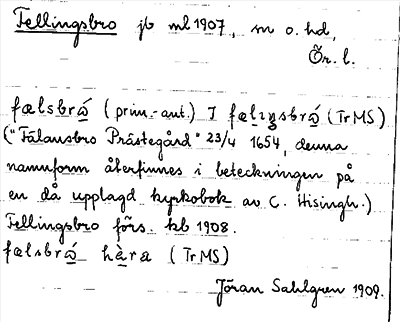 Fellingsbro jb ml 1907, sn o. hd,
Ör. l.
fælsbrǻ (prim.-ant.) I fælıŋsbrǻ (Tr MS)
("Fälansbro Prästegård" 23/4 1654, denna
namnform återfinnes i beteckningen på
en då upplagd kyrkobok av C. Hisingh.)
Fellingsbro förs. kb 1908.
fælsbrǻ hæ̀ra (Tr MS)
Jöran Sahlgren 1909.